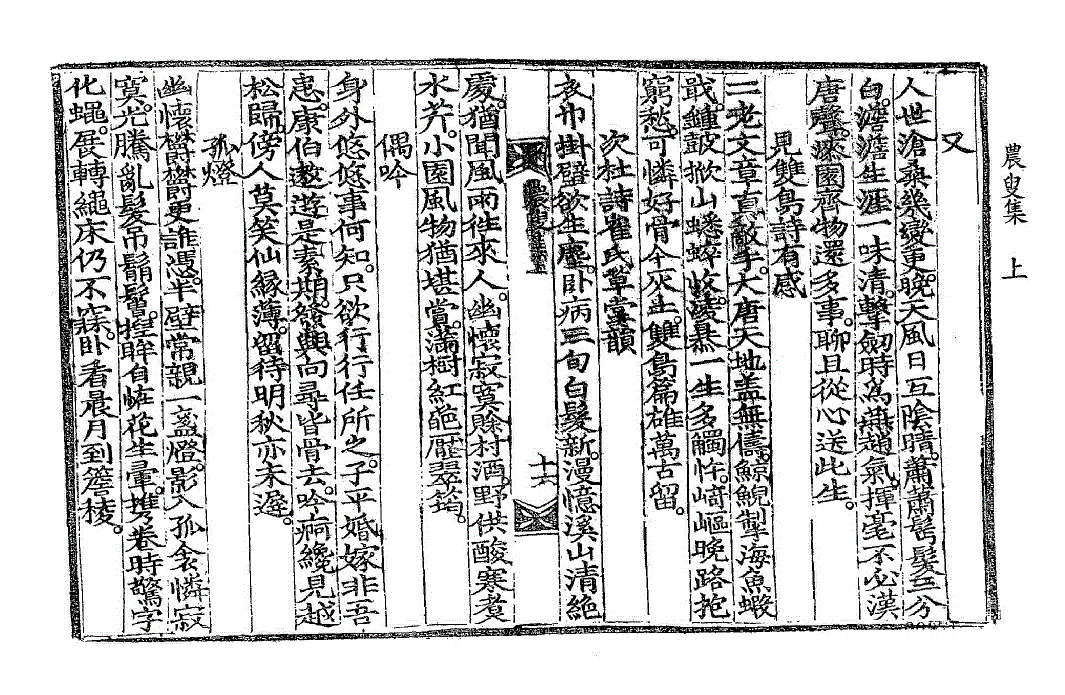 農叟集 上
又
人世滄桑幾變更。晚天風日互陰晴。蕭蕭髩髮三分
白。澹澹生涯一味清。擊劒時爲燕趙氣。揮毫不必漢
唐聲。漆園齊物還多事。聊且從心送此生。
見雙鳥詩有感
二老文章眞敵手。大唐天地盖無儔。鯨鯢掣海魚蝦
戢。鐘皷掀山蟋蟀收。淩暴一生多觸忤。崎嶇晚路抱
窮愁。可憐好骨今灰土。雙鳥篇雄萬古留。
次杜詩崔氏草堂韻
衣巾掛壁欲生塵。卧病三旬白髮新。漫憶溪山淸絶
農叟集上
十六
處。猶聞風雨徃來人。幽懷寂寞賖村酒。野供酸寒煮
水芹。小園風物猶堪賞。滿樹紅葩壓翠筠。
偶吟
身外悠悠事何知。只欲行行任所之。子平婚嫁非吾
患。康伯遨遊是素期。發興向尋皆骨去。吟病纔見越
松歸。傍人莫笑仙緣薄。留待明秋亦未遲。
孤燈
幽懷欝欝更誰憑。半壁常親一盞燈。影入孤衾憐寂
寞。光騰亂髮吊鬅鬙。擡眸自恠花生暈。攤卷時驚字
化蠅。展轉繩床仍不寐。卧看晨月到簷稜。